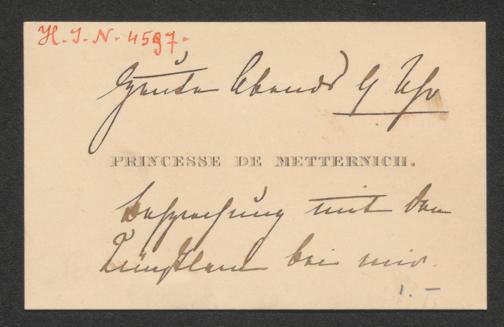 H. I. N. 4597.
Heute Abends 9 Uhr
PRINCESSE DE METTERNICH.
Besprechung mit den
Künstlern bei mir.
1. –